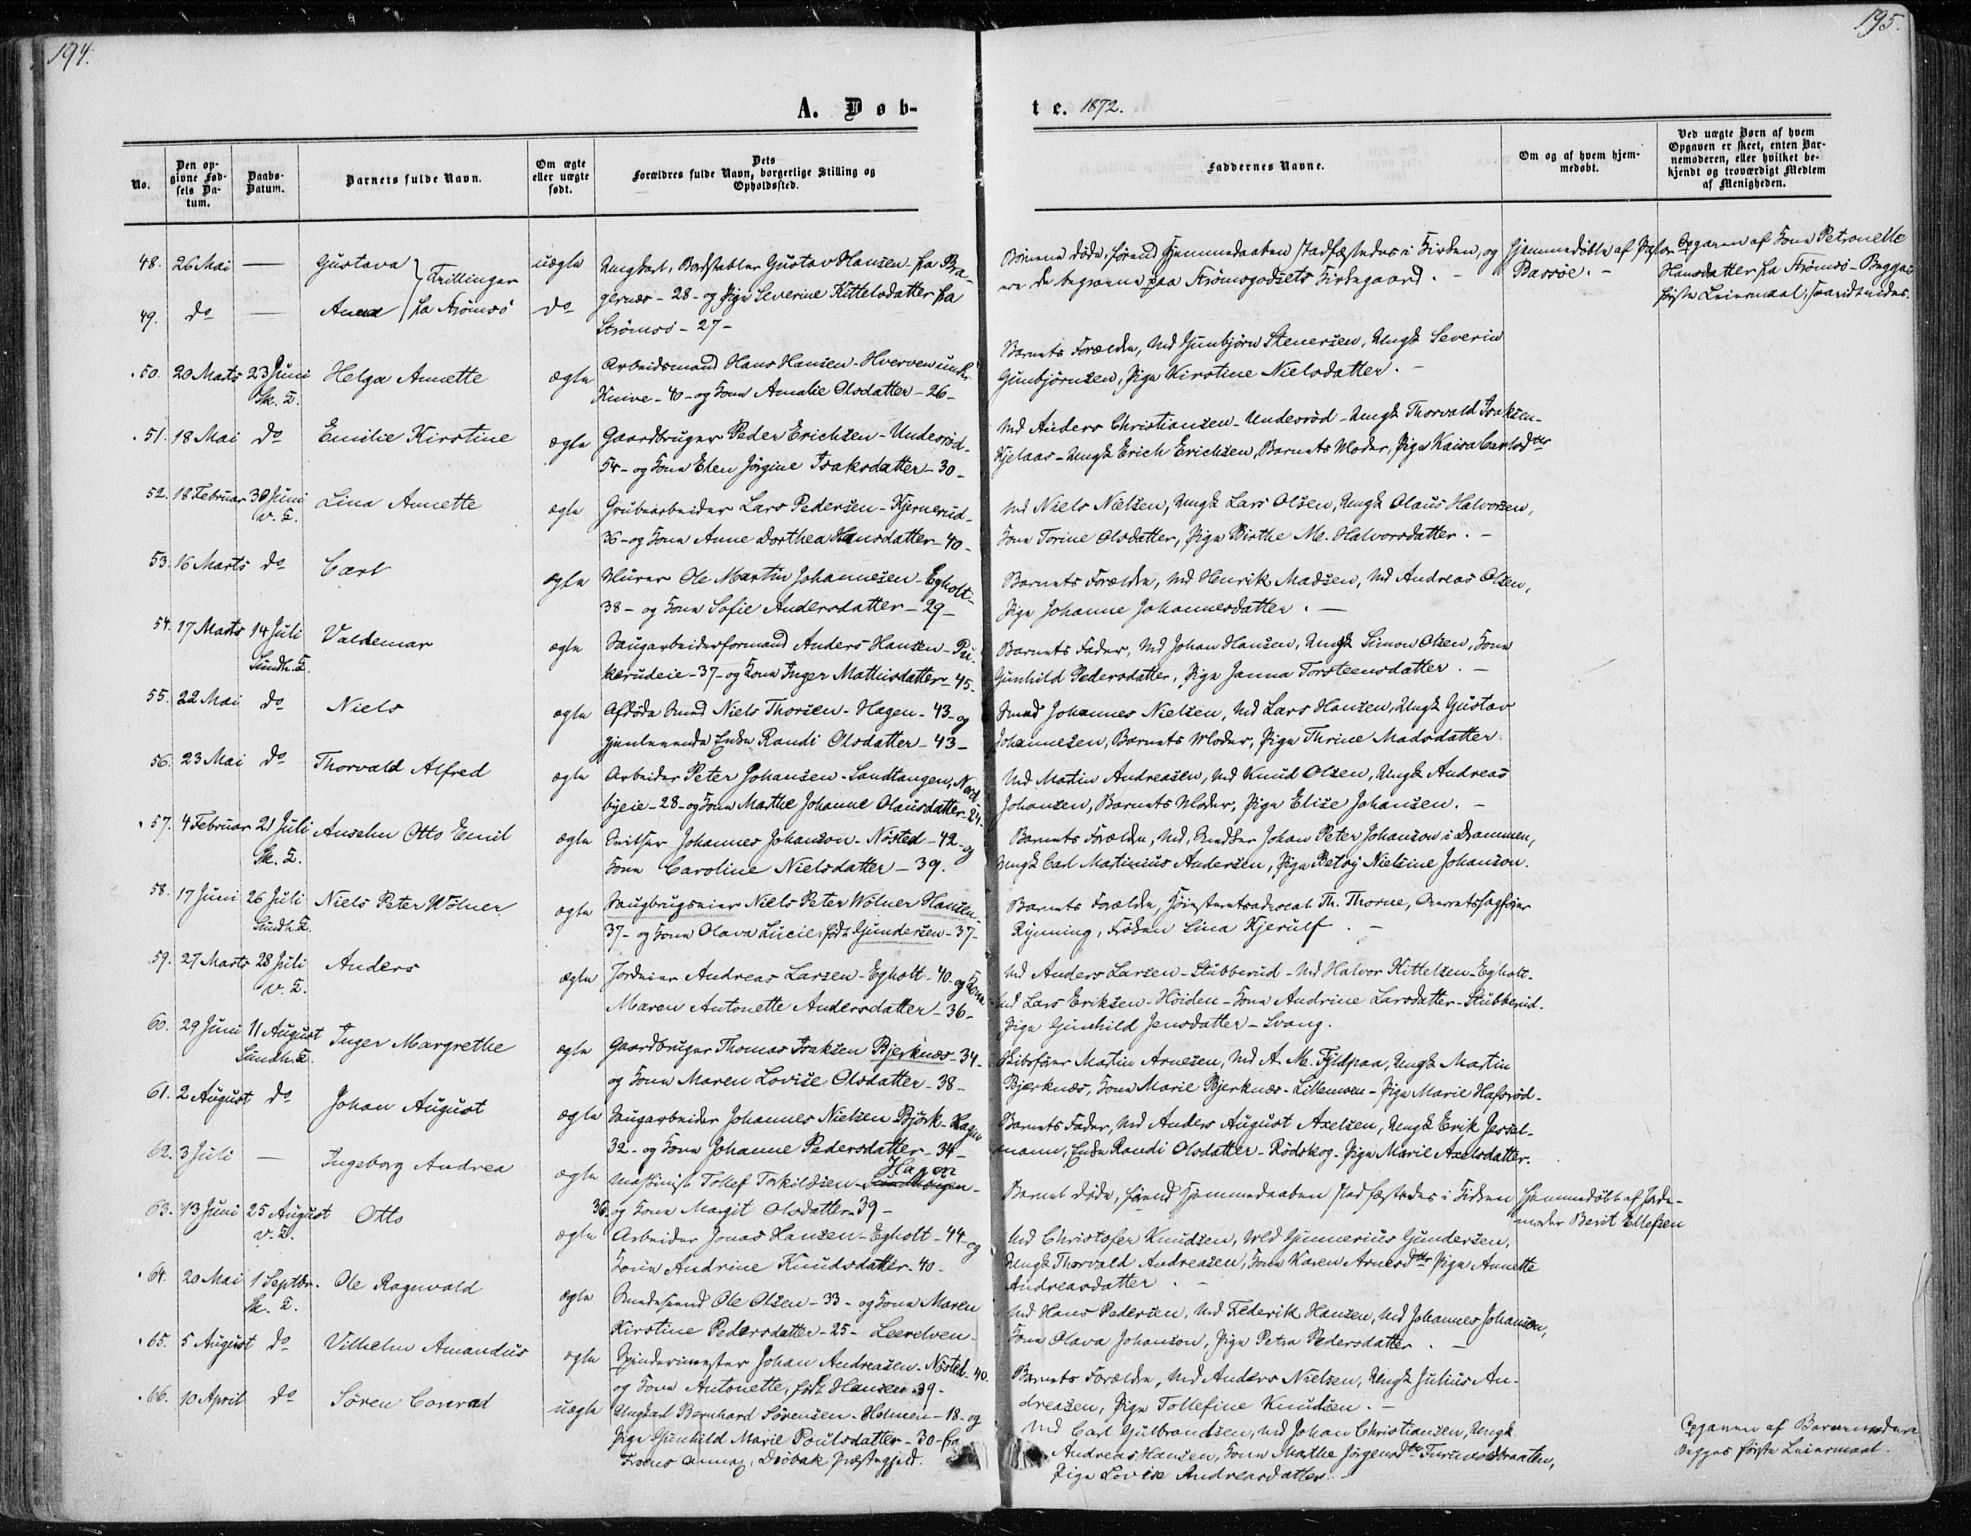 194.
195.
A. Døb-
te. 1872.
No.
Den op-
givne Fød-
sels Da-
tum.
Daabs-
Datum.
Barnets fulde Navn.
Om ægte
eller uægte
født.
Dets
Forældres fulde Navn, borgerlige Stilling og
Opholdssted.
Faddernes Navne.
Om og af hvem hjem-
medøbt.
Ved uægte Børn af hvem
Opgaven er skeet, enten Bar-
nemoderen, eller hvilket be-
kjendt og troværdigt Medlem
af Menigheden.
48. 26 Mai — Gustava } Trillinger uægte Ungkarl, Bordstabler Gustav Hansen fra Bra-
49. do — Anna } fra Strømsö do gernæs - 28 - og Pige Severine Kittelsdatter fra
Strömsö - 27 -
Börnene döde, förend Hjemmedaaben stadfæstedes i Kirken, og
ere de begravne paa Strömsgodsets Kirkegaard. -
Hjemmedöbte af
Bassöe. -
Opgaven af Kone Petronelle
Hansdatter fra Strömsö - Begges
förste Leiermaal,
50. 20 Marts 23 Juni Helga Annette ægte Arbeidsmand Hans Hansen - Hverven under
Sk. K. Knive - 40 - og Kone Amalie Olsdatter - 26 -
Barnets Forældre, Md Gunbjörn Stenersen, Ungk Severin
Gunbjörnsen, Pige Kirstine Nielsdatter. -
51. 18 Mai do Emilie Kirstine ægte Gaardbruger Peder Erichsen - Undersrød -
54 - og Kone Elen Jörgine Isaksdatter - 30 -
Md Anders Christiansen - Undersröd - Ungk Thorvald Isaksen -
Kjelaas - Ungk Erich Erichsen, Barnets Moder, Pige Kaisa Carlsdtr
52. 18 Februar 30 Juni Lina Annette ægte Grubearbeider Lars Pedersen - Kjernerud -
v. K. 36 - og Kone Anne Dorthea Hansdatter - 40 -
Md Niels Nielsen, Ungk Lars Olsen, Ungk Olaus Halvorsen,
Kone Torine Olsdatter, Pige Birthe M. Halvorsdatter. -
53. 16 Marts do Carl ægte Murer Ole Martin Johannesen - Egholt -
38 - og Kone Sofie Andersdatter - 29 -
Barnets Forældre, Md Henrik Madsen, Md Andreas Olsen,
Pige Johanne Johannesdatter. -
54. 17 Marts 14 Juli Valdemar ægte Saugarbeiderformand Anders Hansen -
Sundh. K. kerudeie - 37 - og Kone Inger Mathisdatter - 45 -
Barnets Fader, Md Johan Hansen, Ungk Simon Olsen, Kone
Gunhild Pedersdatter, Pige Janna Torsteensdatter. -
55. 22 Mai do Niels ægte Afdöde Smed Niels Thorsen - Hagen - 43 - og
gjenlevende Enke Randi Olsdatter - 43 -
Smed Johannes Nielsen, Md Lars Hansen, Ungk Gustav
Johannesen, Barnets Moder, Pige Thrine Madsdatter.
56. 23 Mai do Thorvald Alfred ægte Arbeider Peter Johansen - Sandtangen, Nord-
byeie - 28 - og Kone Marthe Johanne Olausdatter - 24 -
Md Martin Andreasen, Md Knud Olsen, Ungk Andreas
Johansen, Barnets Moder, Pige Elise Johansen. -
57. 4 Februar 21 Juli Anselm Otto Emil ægte Johannes Johanson - Nösted - 42 - og
Sk. K. Kone Caroline Nielsdatter - 39.
Barnets Forældre, Md, Johan Peter Johanson i Drammen,
Ungk Carl Martinius Andersen, Pige Betsy Nielsine Johanson.
58. 17 Juni 26 Juli Niels Peter Wölner ægte Saugbrugseier Niels Peter Wölner Hansen -
Sundh. K. 37 - og Kone Olava Lucie, født Gundersen - 37 -
Barnets Forældre, Höiesteretsadvocat Th. Thorne, Overretssagförer
Rynning, Fröken Lina Kjerulf. -
59. 27 Marts 28 Juli Anders ægte Jordeier Andreas Larsen - Egholt - 40 - og Kone
v. K. Maren Antonette Andersdatter - 36 -
Md Anders Larsen - Stubberud - Md Halvor Kittelsen - Egholt -
Md Lars Eriksen - Höiden - Kone Andrine Larsdatter - Stubberud -
Pige Gunhild Jensdatter - Svang.
60. 29 Juni 11 August Inger Margrethe ægte Gaardbruger Thomas Isaksen Bjerknæs - 34 -
Sundh. K. og Kone Maren Lovise Olsdatter - 38 -
Skibsförer Martin Arnesen, Md A. M. Fjldpaa, Ungk Martin
Bjerknæs, Kone Marie Bjerknæs - Lillemoen - Pige Marie Hafsröd -
61. 2 August do Johan August ægte Saugarbeider Johannes Nielsen Björk - Hagen
32 - og Kone Johanne Pedersdatter - 34 -
Barnets Fader, Md Anders August Axelsen, Ungk Erik Jessel-
mann, Enke Randi Olsdatter - Rödskog - Pige Marie Axelsdatter.
62. 3 Juli — Ingeborg Andrea ægte Maskinist Tollef Torkildsen - Hagen
36 - og Kone Margit Olsdatter - 39 -
Barnet döde, förend Hjemmedaaben stadfæstedes i Kirken
Hjemmedöbt af Jorde-
moder Berit Ellefsen
63. 13 Juni 25 August Otto ægte Arbeider Jonas Hansen - Egholt - 44 - og
v. K. Kone Andrine Knudsdatter - 40 -
Md Christofer Knudsen, Md Gunnerius Gundersen,
Ungk Thorvald Andreasen, Kone Karen Arnesdtr Pige Annette
Andreasdatter. -
64. 20 Mai 1 Septbr. Ole Ragnvald ægte Ole Olsen - 33 - og Kone Maren
Sk. K. Kirstine Pedersdatter - 25 - Leerelven -
Md Hans Pedersen, Md Federik Hansen, Md Johannes Johanson,
Kone Olava Johanson, Pige Petra Pedersdatter. -
65. 5 August do Vilhelm Amandus ægte Spindermester Johan Andreasen - Nösted - 40 -
og Kone Antonette, født Hansen - 39 -
Barnets Forældre, Md Anders Nielsen, Ungk Julius An-
dreasen, Pige Tollefine Knudsen. -
66. 10 April do Sören Conrad uægte Ungkarl Bernhard Sörensen - Holmen - 18 - og
Pige Gunhild Marie Poulsdatter - 30 - fra
Dröbak Præstegjeld.
Md Carl Gulbrandsen, Md Johan Christiansen, Ungk
Andreas Hansen, Kone Mathe Jörgensdtr
Pige Lovise Andreasdatter. -
Opgaven af Barnemoderen
Begges förste Leiermaal.